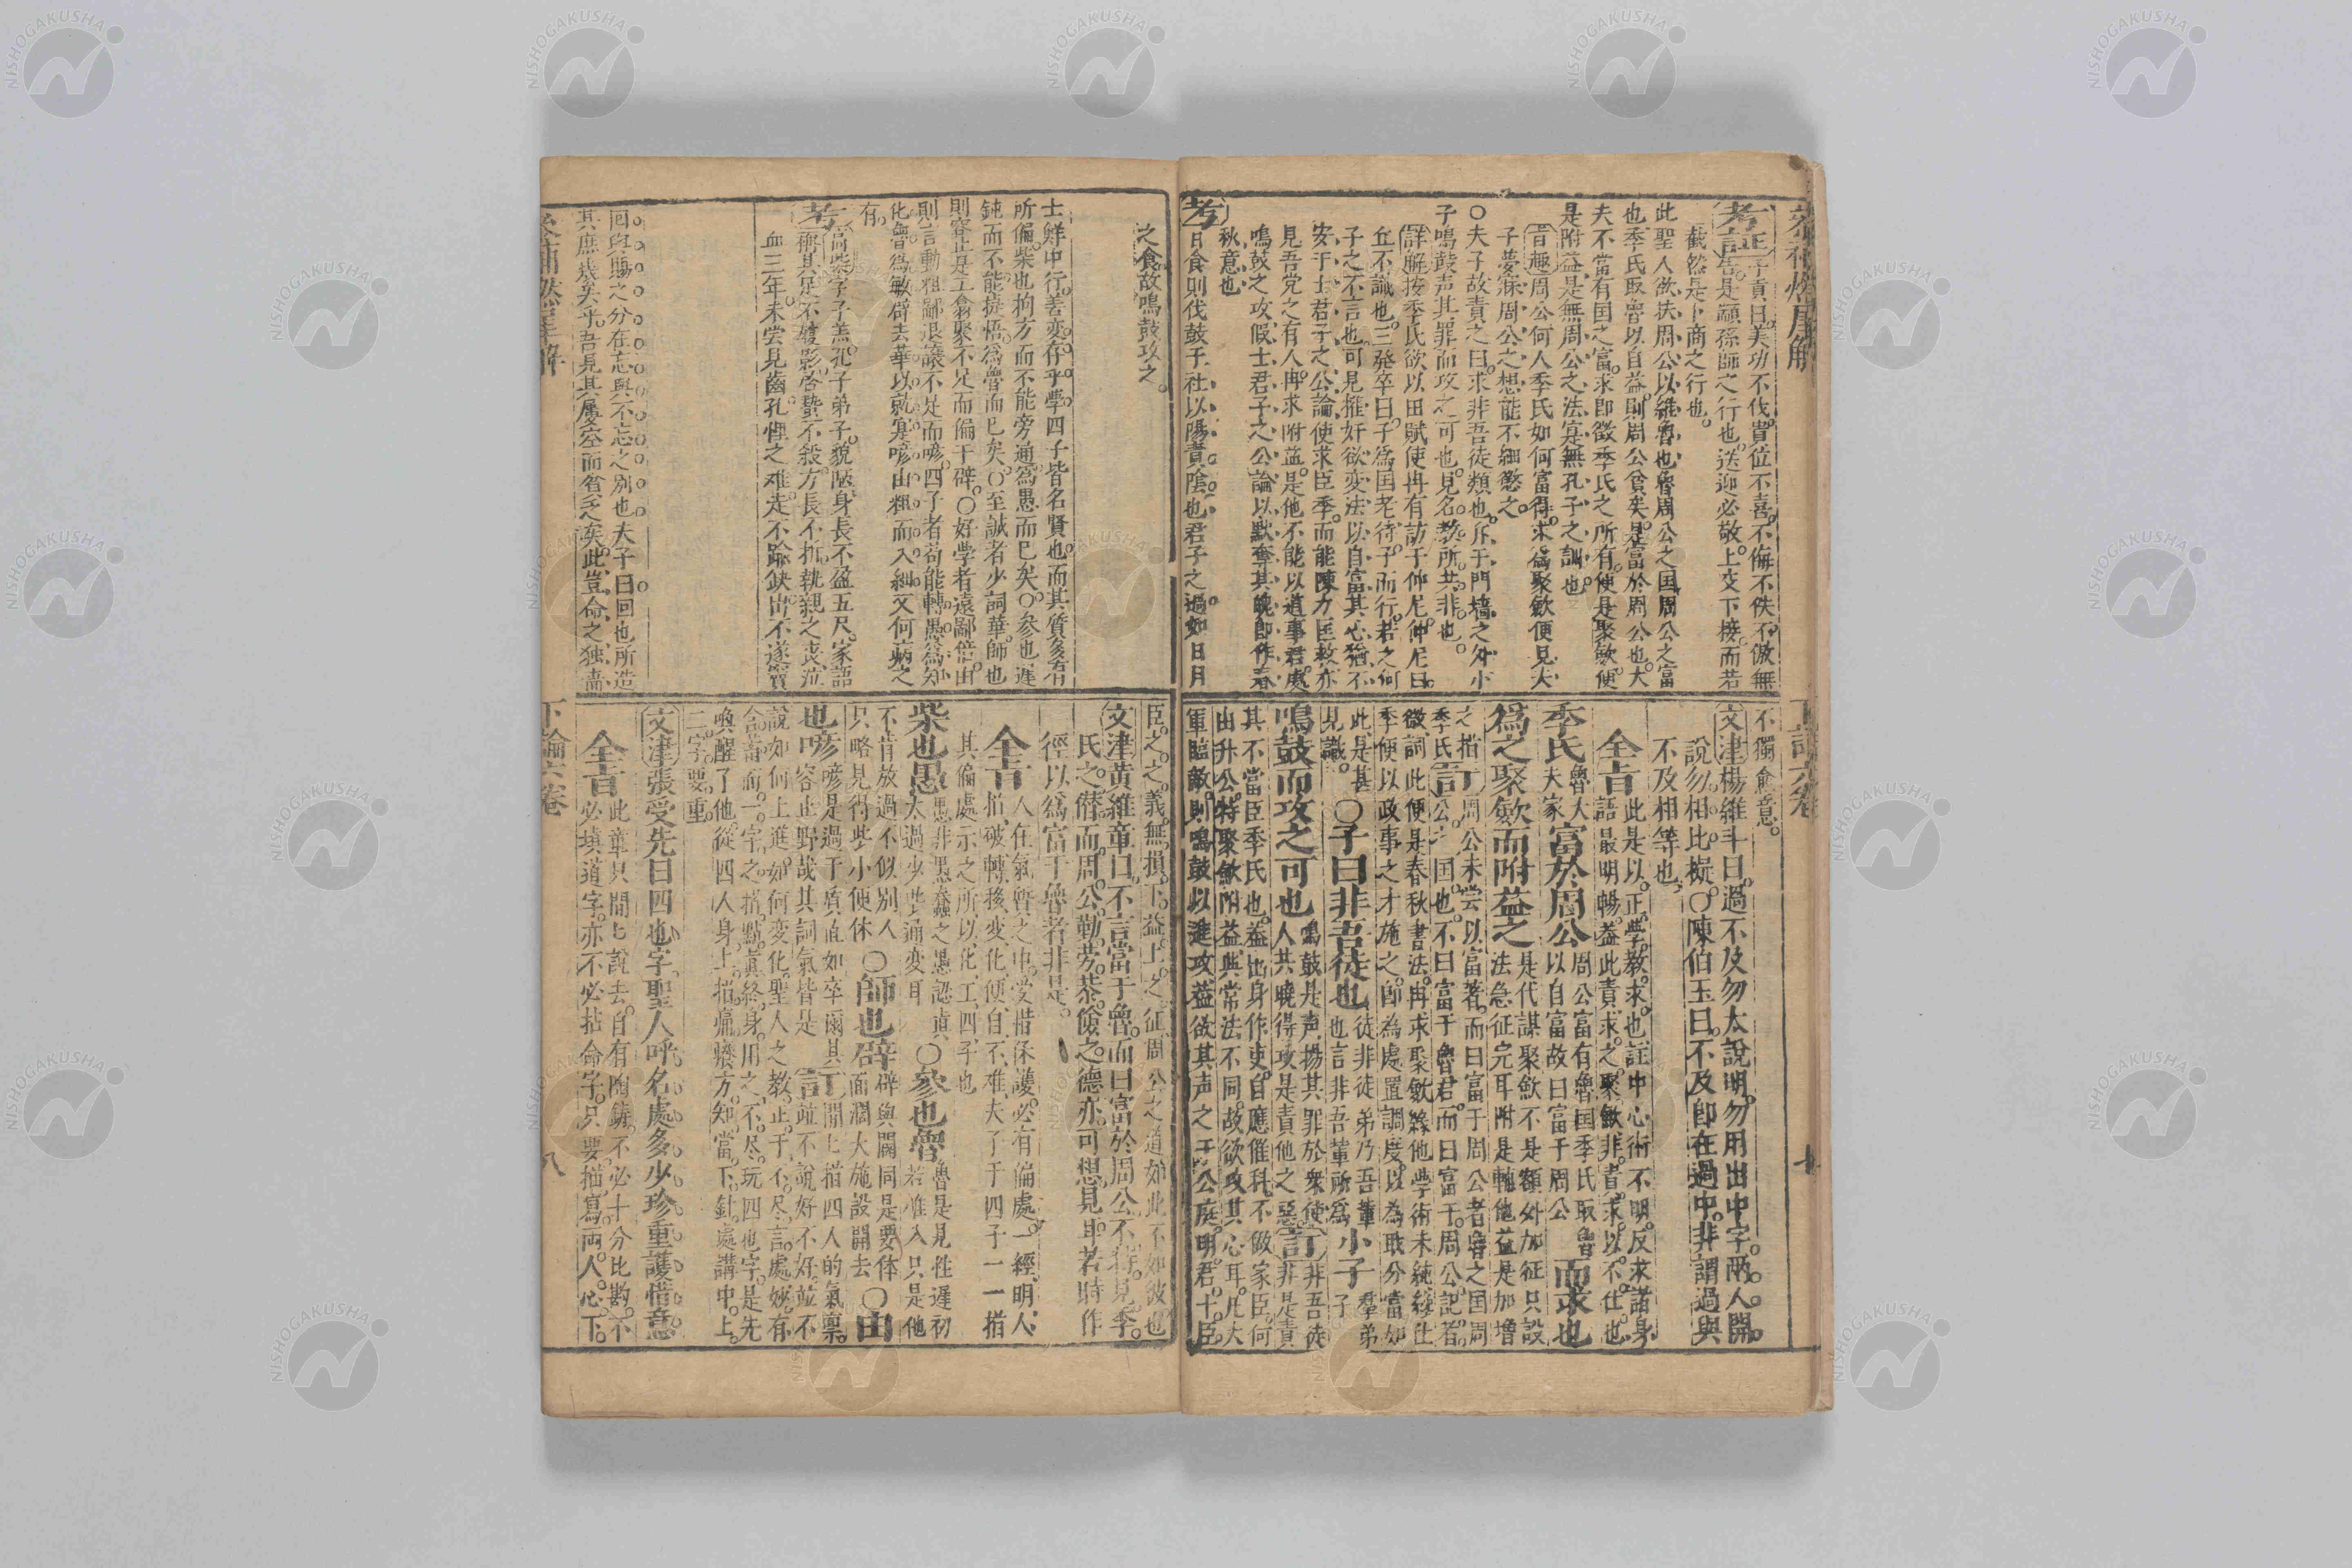 考証子貢曰美功不伐貴位不喜不侮不佚不傲無
告是顓孫師之行也送迎必敬上交下接而若
截然是卜商之行也
此聖人欲扶周公以維魯也魯周公之国周公之富
也季氏取魯以自益則周公貧矣是富於周公也大
夫不當有国之富求即徵季氏之所有便是聚斂便
是附益是無周公之法寔無孔子之訓也
旨趣周公何人季氏如何富得求為聚斂便見夫
子夢寐周公之想能不細慾之
〇夫子故責之曰求非吾徒類也斥于門墻之外小
子鳴鼓声其罪而攻之可也見名教所共非也
詳解按季氏欲以田賦使冉有訪于仲尼仲尼曰
丘不識也三発卒曰子為国老待子而行若之何
子之不言也可見推奸欲変法以自富其心猶不
安于士君子之公論使求臣季而能陳力匡救亦
見吾党之有人冉求附益是他不能以道事君處
鳴鼓之攻假士君子之公論以默奪其魄即作春
秋意也
考日食則伐鼓于社以陽責陰也君子之過如日月
不獨愈意
文津楊維斗曰過不及勿太說明勿用出中字兩人開
說勿相比擬〇陳伯玉曰不及即在過中非謂過與
不及相等也
全旨此是以正學教求也註中心術不明反求諸身
語最明暢益此責求之聚斂非責求以不仕也
季氏魯大夫家富於周公周公富有魯国季氏取魯以自富故曰富于周公而求也
為之聚斂而附益之是代謀聚斂不是額外加征只設法急征完耳附是輔他益是加增
之描季氏訂周公未尝以富著而曰富于周公者魯之国周公之国也不曰富于魯君而曰富于周公記者
微詞此便是春秋書法冉求聚斂緣他學術未純綫仕
季便以政事之才施之即為處置調度以為職分當如
此是甚見識〇子曰非吾徒也徒非徒弟乃吾輩也言非吾輩所為小子羣弟子
鳴鼓而攻之可也鳴鼓是声揚其罪於衆使人其曉得攻是責他之惡訂非吾徒非是責
其不當臣季氏也益出身作吏自應催科不做家臣何
由升公特聚斂附益與常法不同故欲攻其心耳凡大
軍臨敵則鳴鼓以進攻益欲其声之于公庭明君十臣
之食故鳴鼓攻之
士鮮中行善変存乎學四子皆名賢也而其質多有
所偏柴也拘方而不能旁通為愚而已矣〇参也遲
鈍而不能捷悟為魯而已矣〇至誠者少詞華師也
則容止是工翕聚不足而偏于辟〇好學者遠鄙倍由
則言動粗鄙退讓不足而喭四子者苟能轉愚為知
化魯為敏辟去華以就寔喭由粗而入細又何病之
有
考高柴字子羔孔子弟子貌陋身長不盈五尺家語
稱其足不履影啓蟄不殺方長不折執親之喪泣
血三年未尝見齒孔悝之难走不踰缺出不遂竇
回與賜之分在忘與不忘之別也夫子曰回也所造
其庶幾矣乎吾見其屢空而省乏矣此豈命之独嗇
臣之之義無損下益上之征周公之道如此不如彼也
文津黄維章曰不言當于魯而曰富於周公不特見季
氏之僭而周公勤劳恭儉之德亦可想見耳若時作
徑以為富于魯者非是
全旨人在氣質之中受惜保護必有偏處一經明人
描破轉移変化便自不难夫子于四子一一描
其偏處示之所以化工四子也
柴也愚愚非愚蠢之愚認真太過少些通変耳〇參也魯魯是見性遲初若难入只是他
不肯放過不似別人只略見得些小便休〇師也辟辟與闢同是要体面濶大施設開去〇由
也喭喭是過于质直如卒爾其容止野哉其詞氣皆是訂開七描四人的氣禀竝不說好不好竝不
說如何上進如何変化聖人之教止于不尽言處妙有
含蓄而一字之描點真終身用之不尽玩四也字是先
喚醒了他從四人身上描痛癢方知當下針處講中上
二字要重
文津張受先曰四也字聖人呼名處多少珍重護惜意
全旨此章只閒七說去自有陶鎔不必十分比勘不
必填道字亦不必拈命字只要描寫両人心下
下論六卷
八